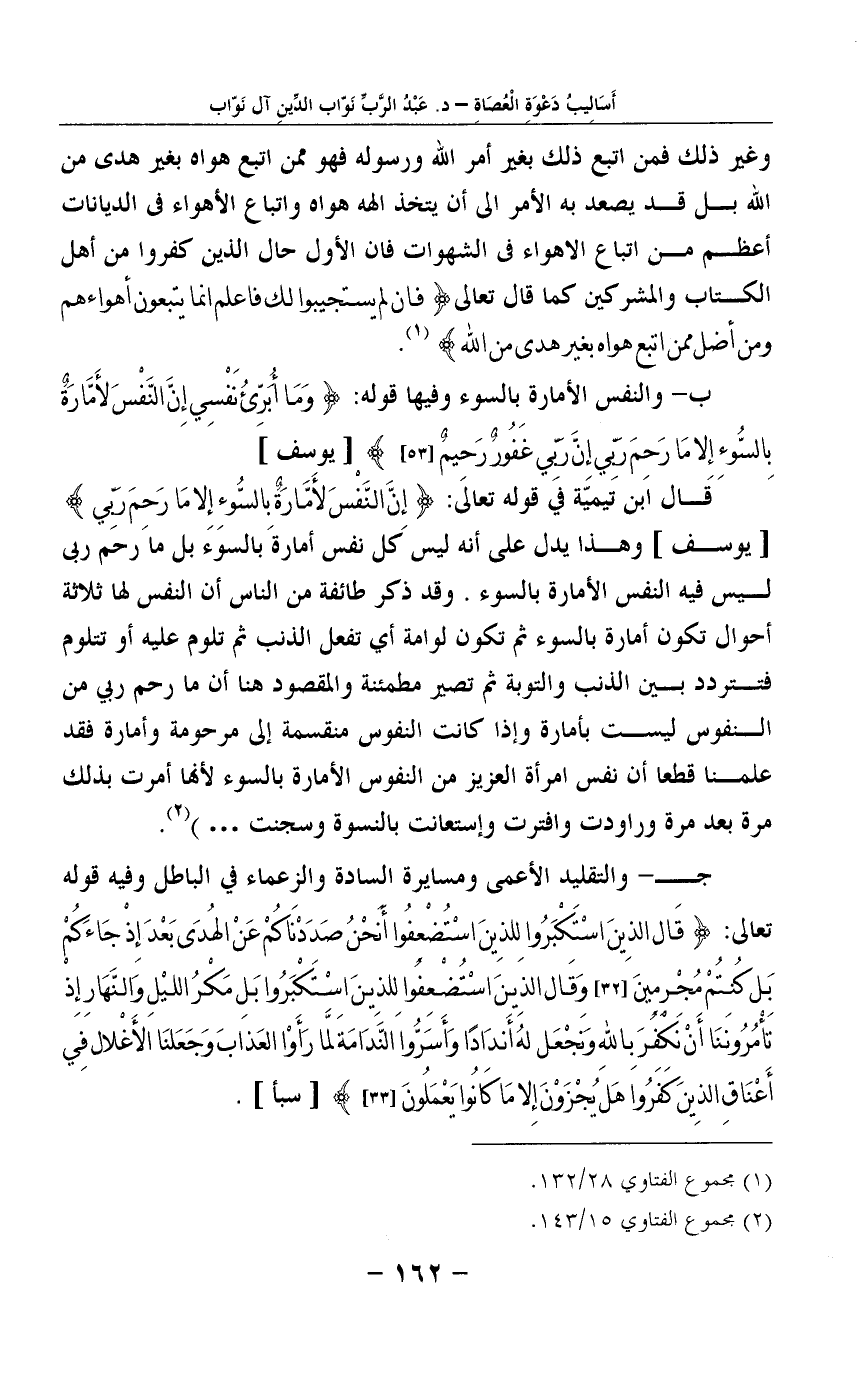 أَسَالِيبُ دَعْوَةِ الْعُصَاةِ – د. عَبْدُ الرَّبِّ نَوّاب الدِّينِ آل نَوّاب
وغير ذلك فمن اتبع ذلك بغير أمر الله ورسوله فهو ممن اتبع هواه بغير هدى من
الله بـــل قـــد يصعد به الأمر الى أن يتخذ الهه هواه واتباع الأهواء فى الديانات
أعظـــم مـــن اتباع الاهواء فى الشهوات فان الأول حال الذين كفروا من أهل
الكـــتاب والمشركين كما قال تعالى ﴿ فان لم يستجيبوا لك فاعلم انما يتبعون أهواءهم
ومن أضل ممن اتبع هواه بغير هدى من الله ﴾ (١).
ب– والنفس الأمارة بالسوء وفيها قوله: ﴿ وَمَا أُبَرِّئُ نَفْسِي إِنَّ النَّفْسَ لأَمَّارَةٌ
بِالسُّوءِ إِلا مَا رَحِمَ رَبِّي إِنَّ رَبِّي غَفُورٌ رَحِيمٌ [٥٣] ﴾ [ يوسف ]
قـــال ابن تيميّة في قوله تعالى: ﴿ إِنَّ النَّفْسَ لأَمَّارَةٌ بِالسُّوءِ إِلا مَا رَحِمَ رَبِّي ﴾
[ يوســـف ] وهـــذا يدل على أنه ليس كل نفس أمارة بالسوء بل ما رحم ربى
لـــيس فيه النفس الأمارة بالسوء . وقد ذكر طائفة من الناس أن النفس لها ثلاثة
أحوال تكون أمارة بالسوء ثم تكون لوامة أي تفعل الذنب ثم تلوم عليه أو تتلوم
فتـــتردد بـــين الذنب والتوبة ثم تصير مطمئنة والمقصود هنا أن ما رحم ربي من
الـــنفوس ليســـت بأمارة وإذا كانت النفوس منقسمة إلى مرحومة وأمارة فقد
علمـــنا قطعا أن نفس امرأة العزيز من النفوس الأمارة بالسوء لأنها أمرت بذلك
مرة بعد مرة وراودت وافترت وإستعانت بالنسوة وسجنت ... )(٢).
جـــ– والتقليد الأعمى ومسايرة السادة والزعماء في الباطل وفيه قوله
تعالى: ﴿ قَالَ الَّذِينَ اسْتَكْبَرُوا لِلَّذِينَ اسْتُضْعِفُوا أَنَحْنُ صَدَدْنَاكُمْ عَنْ الْهُدَى بَعْدَ إِذْ جَاءَكُمْ
بَلْ كُنتُمْ مُجْرِمِينَ [٣٢] وَقَالَ الَّذِينَ اسْتُضْعِفُوا لِلَّذِينَ اسْتَكْبَرُوا بَلْ مَكْرُ اللَّيْلِ وَالنَّهَارِ إِذْ
تَأْمُرُونَنَا أَنْ نَكْفُرَ بِاللهِ وَنَجْعَلَ لَهُ أَندَادًا وَأَسَرُّوا النَّدَامَةَ لَمَّا رَأَوْا الْعَذَابَ وَجَعَلْنَا الأَغْلالَ فِي
أَعْنَاقِ الَّذِينَ كَفَرُوا هَلْ يُجْزَوْنَ إِلا مَا كَانُوا يَعْمَلُونَ [٣٣] ﴾ [ سبأ ] .
(١) مجموع الفتاوي ١٣٢/٢٨.
(٢) مجموع الفتاوي ١٤٣/١٥.
– ١٦٢ –